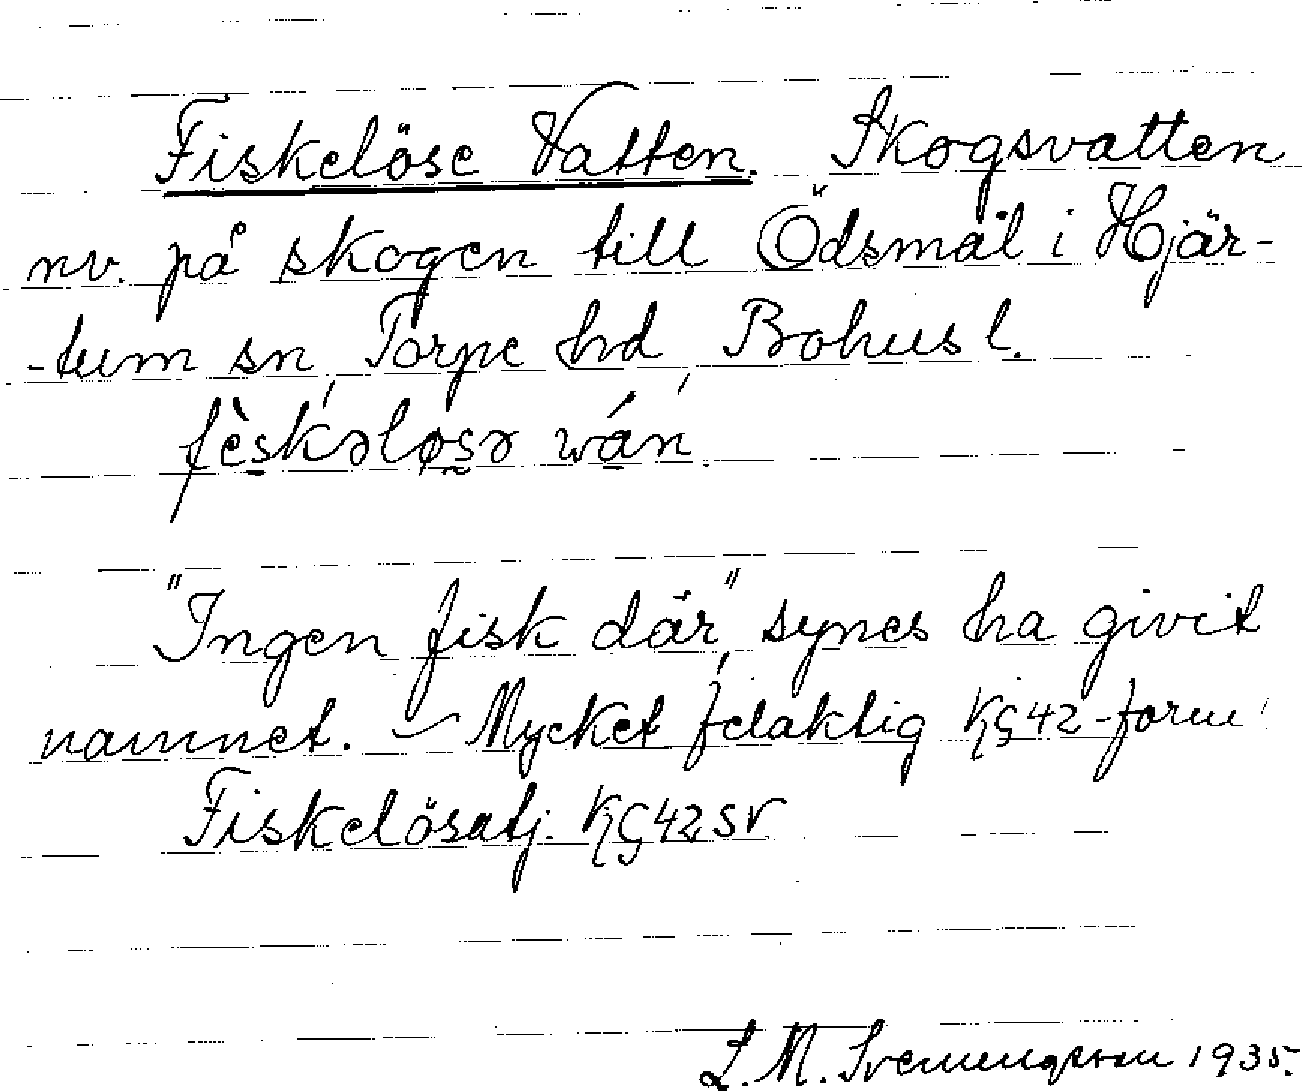 Fiskelöse Vatten. Skogsvatten
nv. på skogen till Ödsmål i Hjär-
-tum sn, Torpe hd, Bohusl.
fèskələsə wán
"Ingen fisk där", synes ha givit
namnet. – Mycket felaktig KG42-form
Fiskelösatj. KG42SV
L. M. Svenungsson 1935.